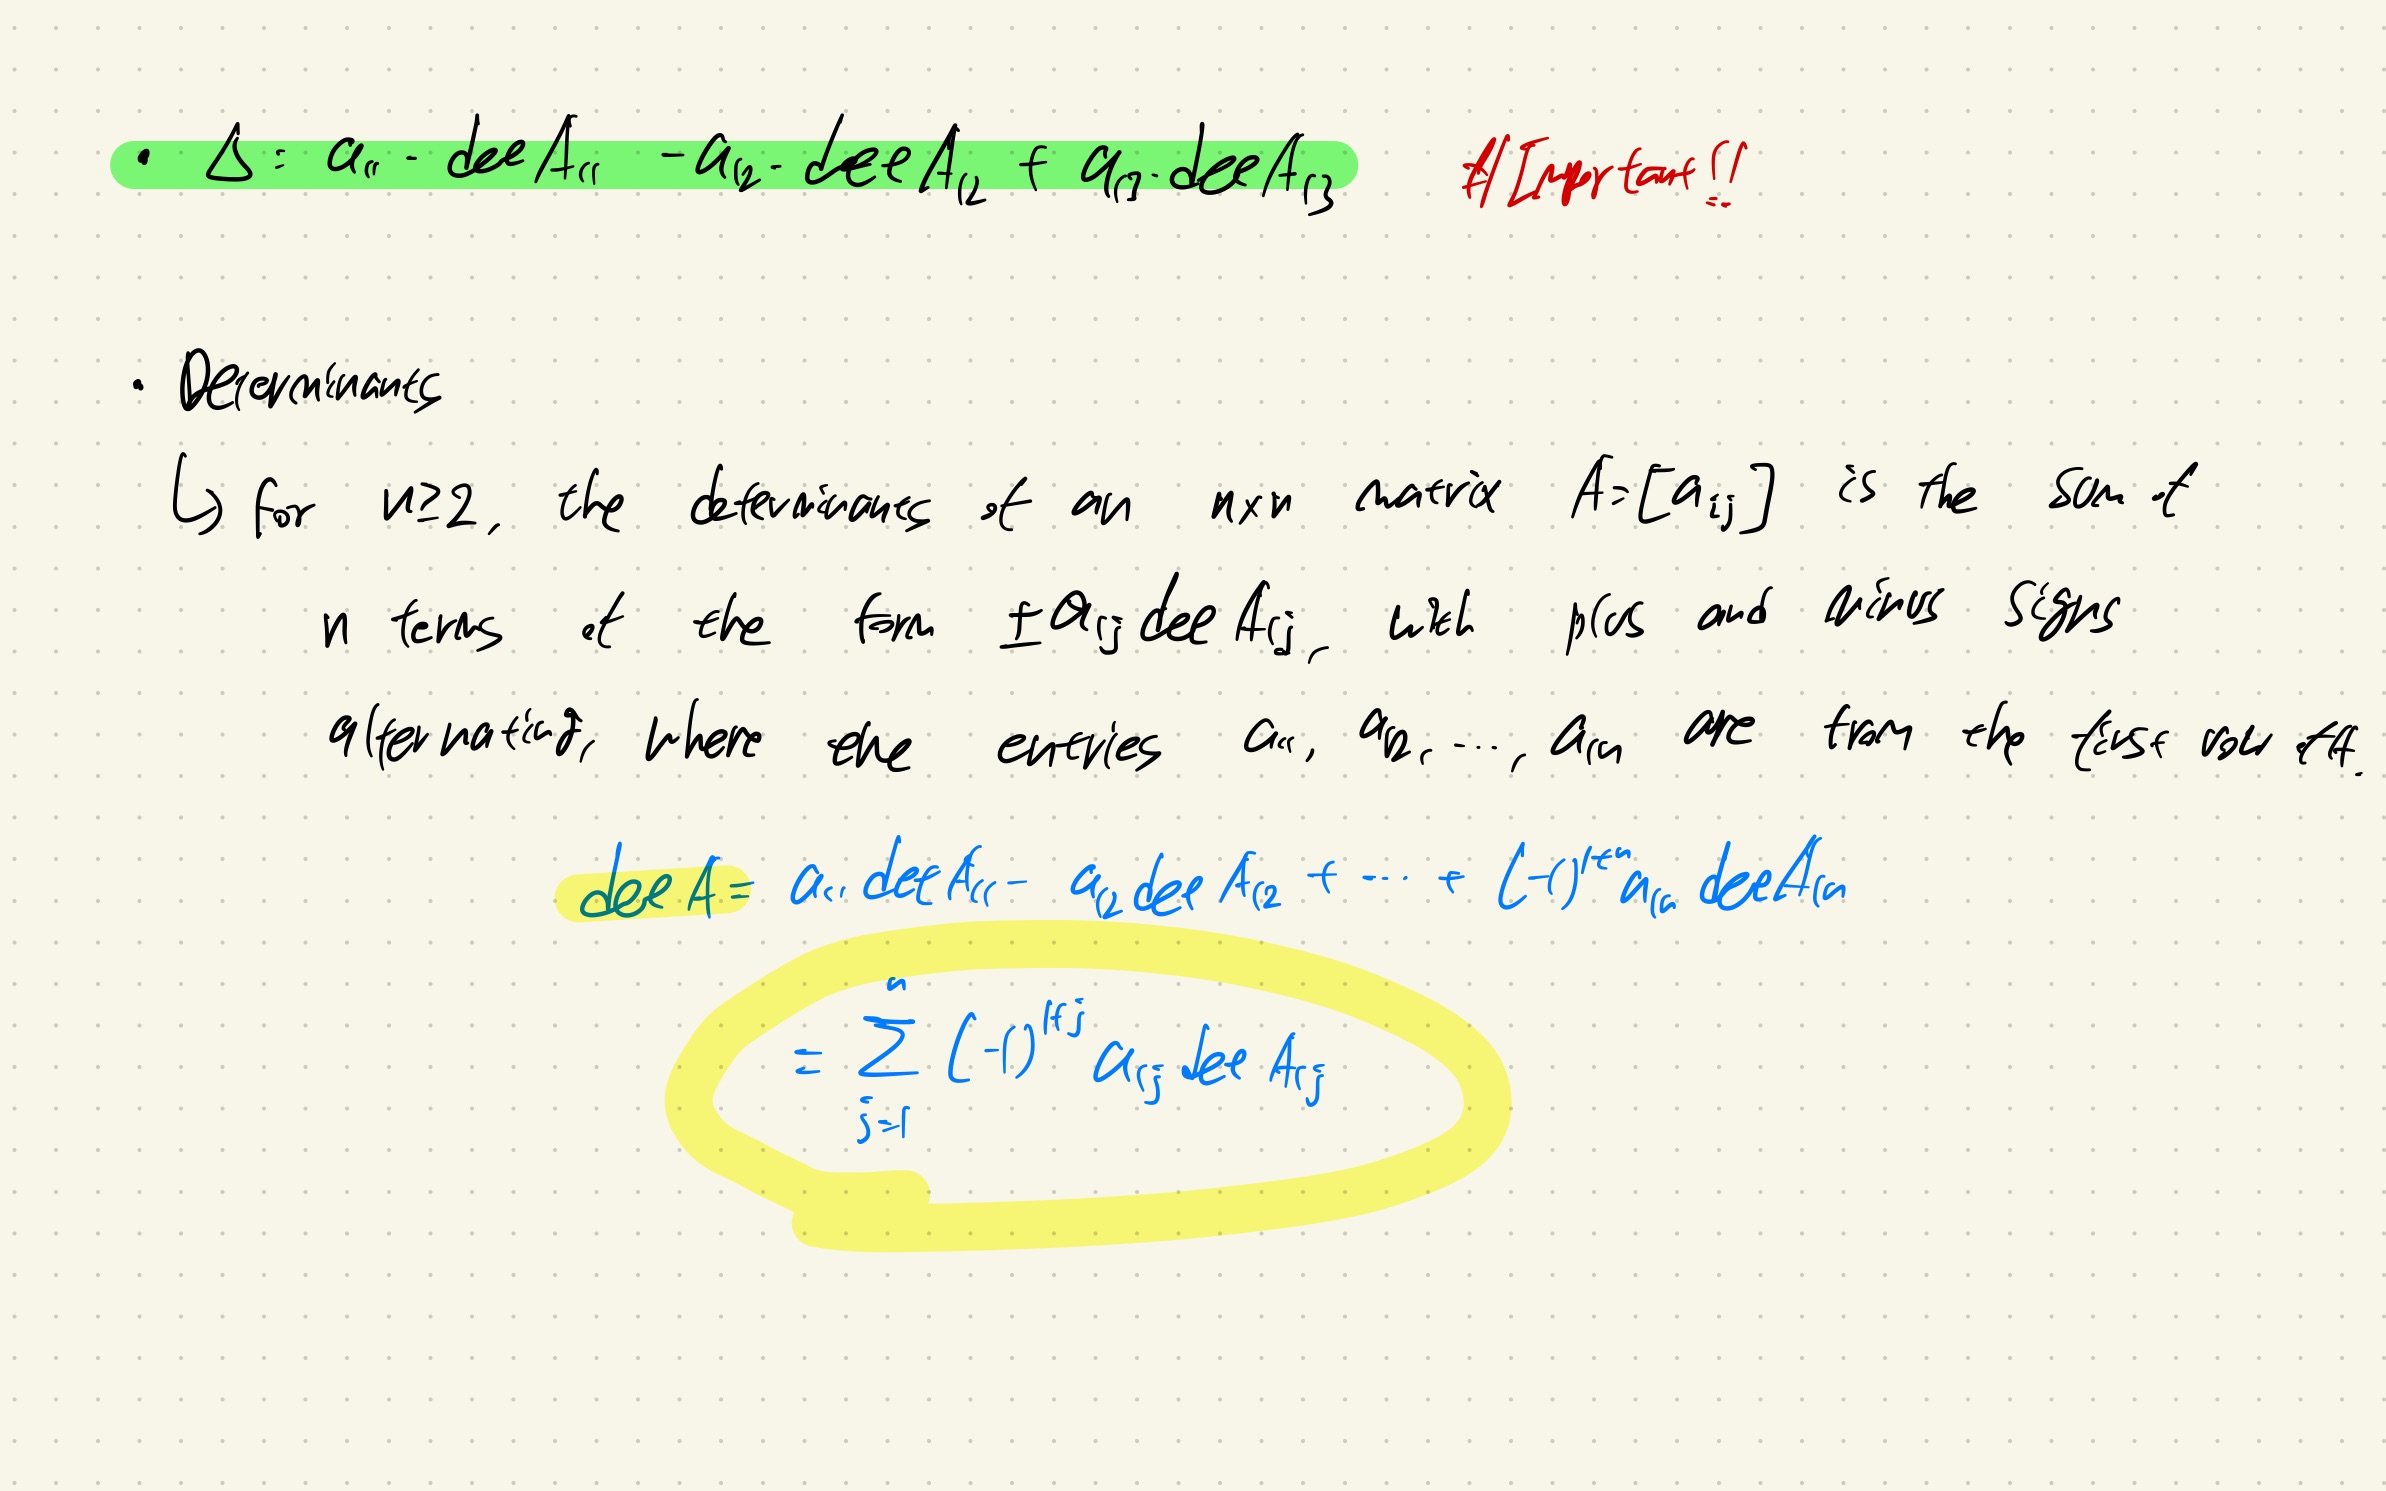 • Δ = a₁₁ · det A₁₁ - a₁₂ · det A₁₂ + a₁₃ · det A₁₃ # Important!!
• Determinants
↳ for n≥2, the determinants of an n×n matrix A=[aᵢⱼ] is the sum of
n terms of the form ±a₁ⱼ det A₁ⱼ, with plus and minus signs
alternating, where the entries a₁₁, a₁₂, ..., a₁ₙ are from the first row of A.
det A = a₁₁ det A₁₁ - a₁₂ det A₁₂ + ... + (-1)¹⁺ⁿ a₁ₙ det A₁ₙ
= ∑ⁿⱼ₌₁ (-1)¹⁺ʲ a₁ⱼ det A₁ⱼ